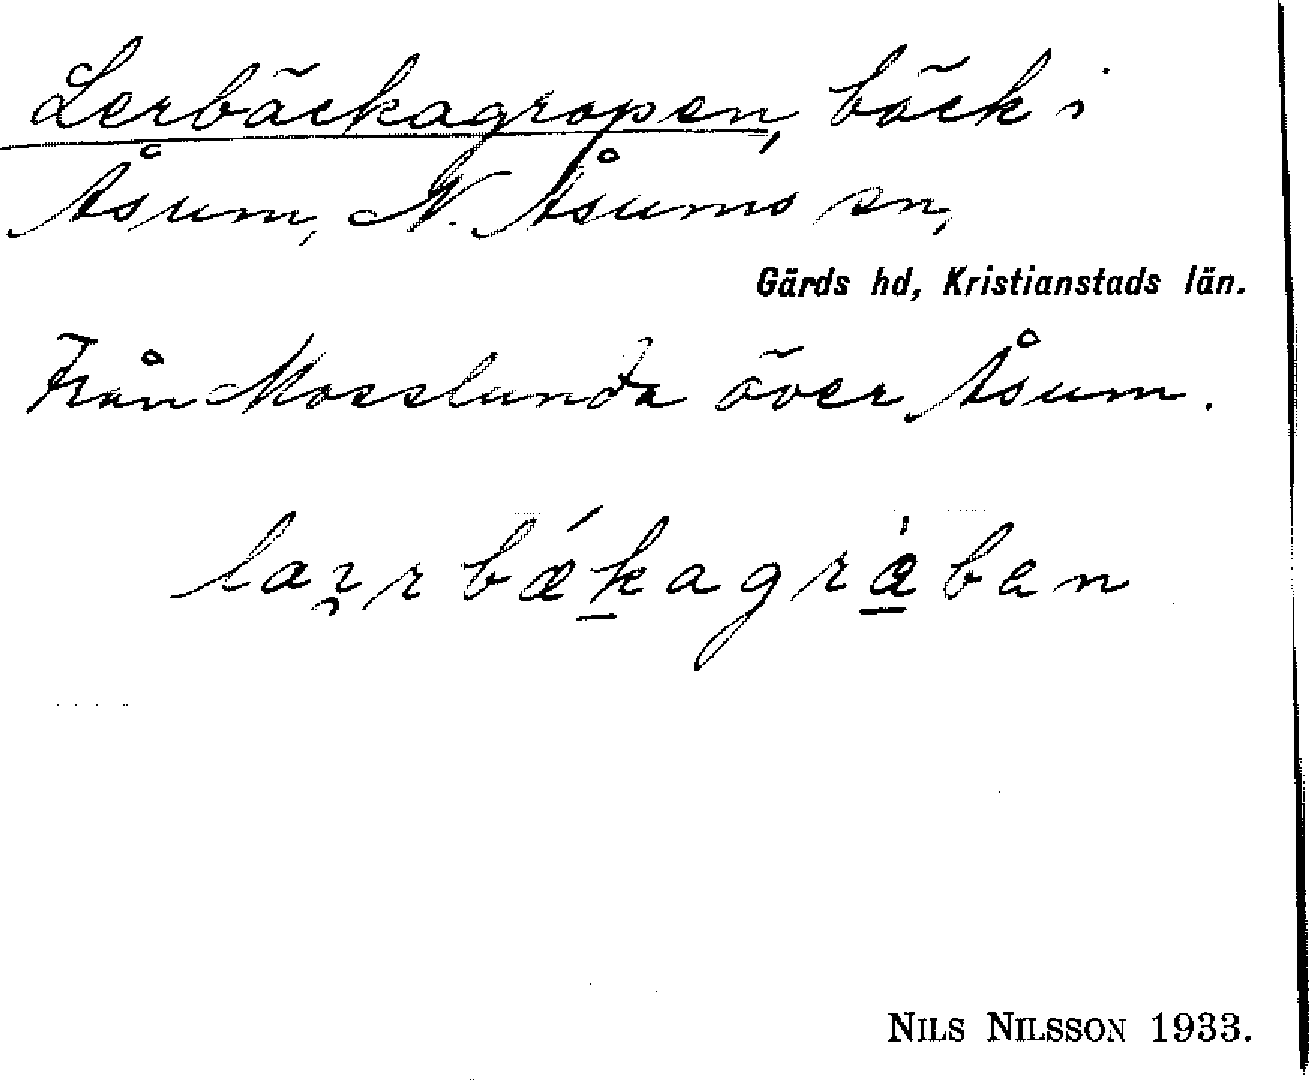 Lerbäckagropen, bäck i
Åsum, N. Åsums sn,
Gärds hd, Kristianstads län.
Från Mosslunda över Åsum.
NILS NILSSON 1933.